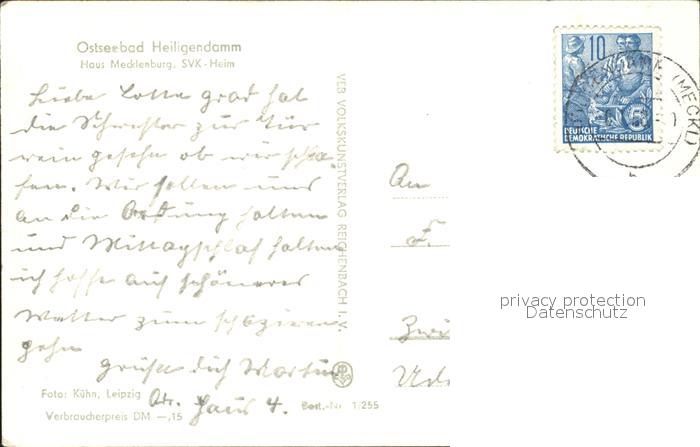 Ostseebad Heiligendamm
Haus Mecklenburg, SVK-Heim
Liebe Lotte grad hat
die Schwester zur Tür
rein gesehn ob wir schla-
fen. Wir sollen uns
an die Ordnung halten
und Mittagschlaf halten
ich hoffe auf schöneres
Wetter zum spazieren
gehn
grüße dich Martin
Haus 4.
Foto: Kühn, Leipzig
Verbraucherpreis DM —,15
Best.-Nr. 1/255
VEB VOLKSKUNSTVERLAG REICHENBACH I. V.
10
5
DEUTSCHE
DEMOKRATISCHE REPUBLIK
(MECKL)
An
F.
privacy protection
Datenschutz